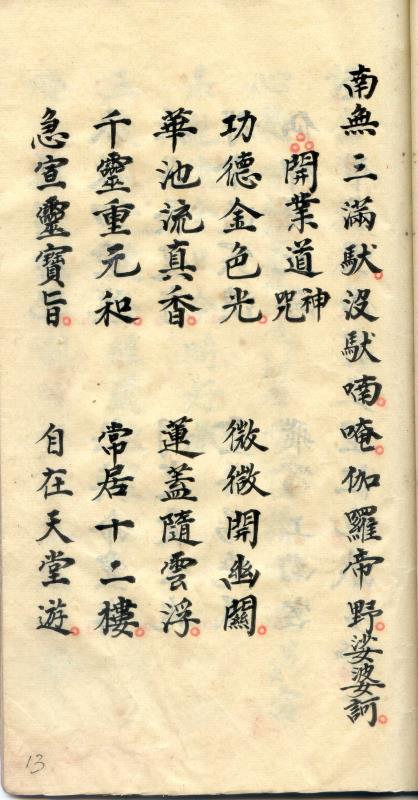 南無三滿馱沒馱喃唵伽羅帝野娑婆訶
開業道神咒
功德金色光 微微開幽關
華池流真香 蓮蓋隨雲浮
千靈重元和 常居十二樓
急宣靈寶旨 自在天堂遊
13